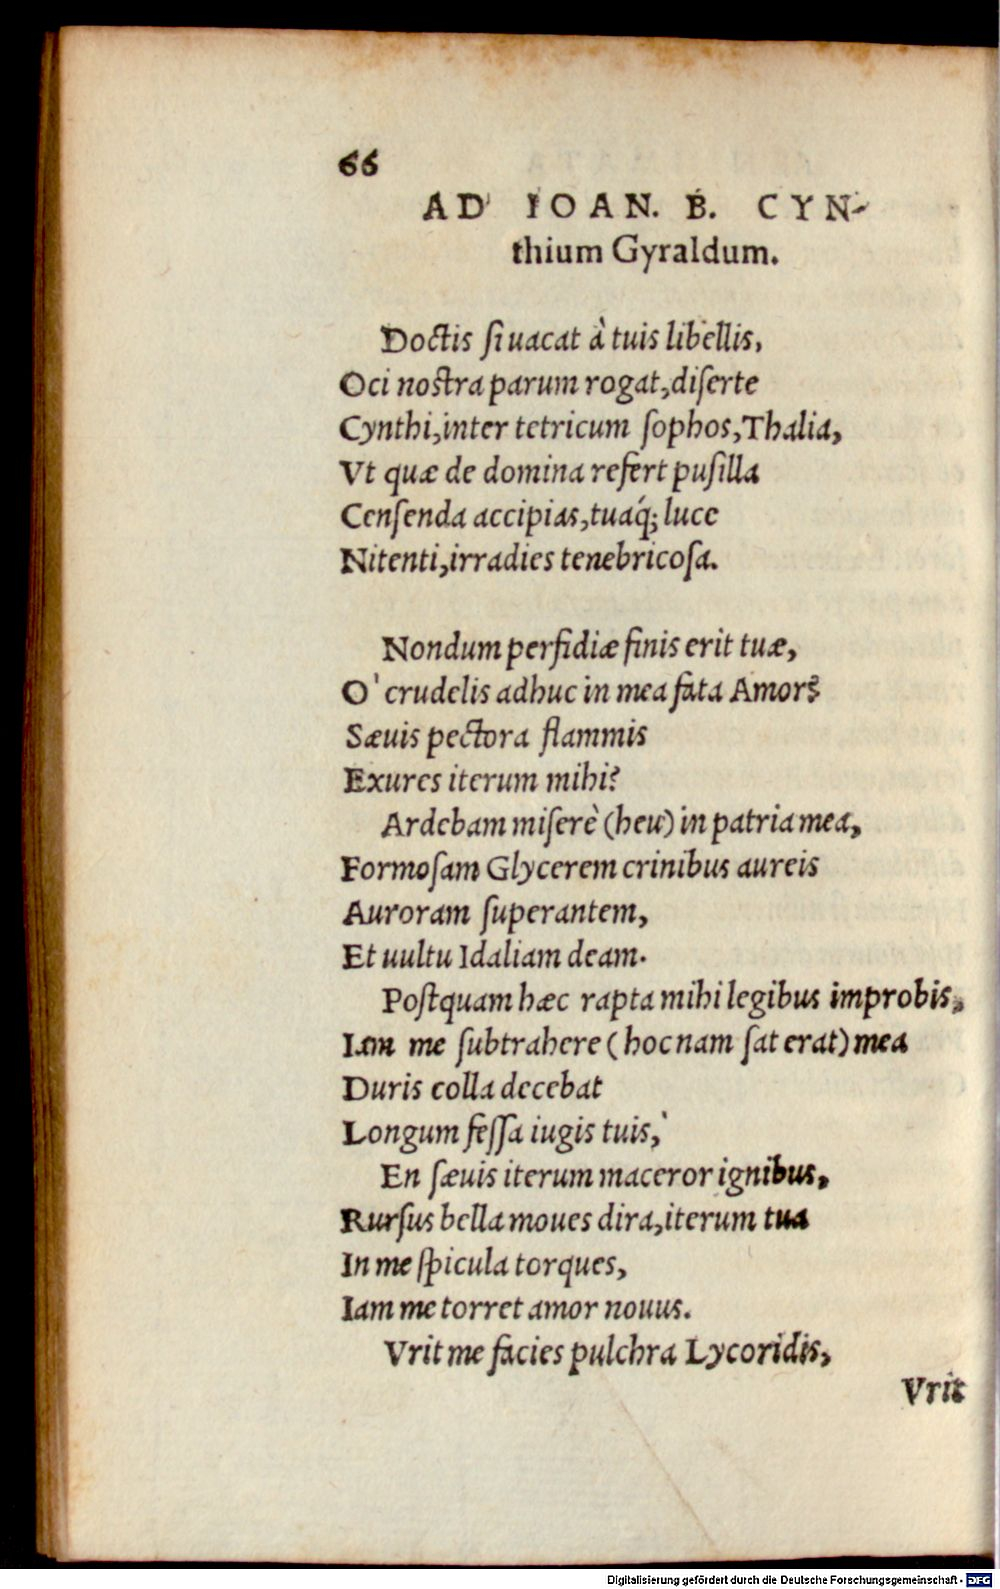 66
AD IOAN. B. CYN-
thium Gyraldum.
Doctis si uacat à tuis libellis,
Oci nostra parum rogat, diserte
Cynthi, inter tetricum sophos, Thalia,
Vt quæ de domina refert pusilla
Censenda accipias, tuaq́; luce
Nitenti, irradies tenebricosa.
Nondum perfidiæ finis erit tuæ,
O' crudelis adhuc in mea fata Amor?
Sæuis pectora flammis
Exures iterum mihi?
Ardebam miserè (heu) in patria mea,
Formosam Glycerem crinibus aureis
Auroram superantem,
Et uultu Idaliam deam.
Postquam hæc rapta mihi legibus improbis,
Iam me subtrahere (hoc nam sat erat) mea
Duris colla decebat
Longum fessa iugis tuis,
En sæuis iterum maceror ignibus,
Rursus bella moues dira, iterum tua
In me spicula torques,
Iam me torret amor nouus.
Vrit me facies pulchra Lycoridis,
Vrit
Digitalisierung gefördert durch die Deutsche Forschungsgemeinschaft - DFG